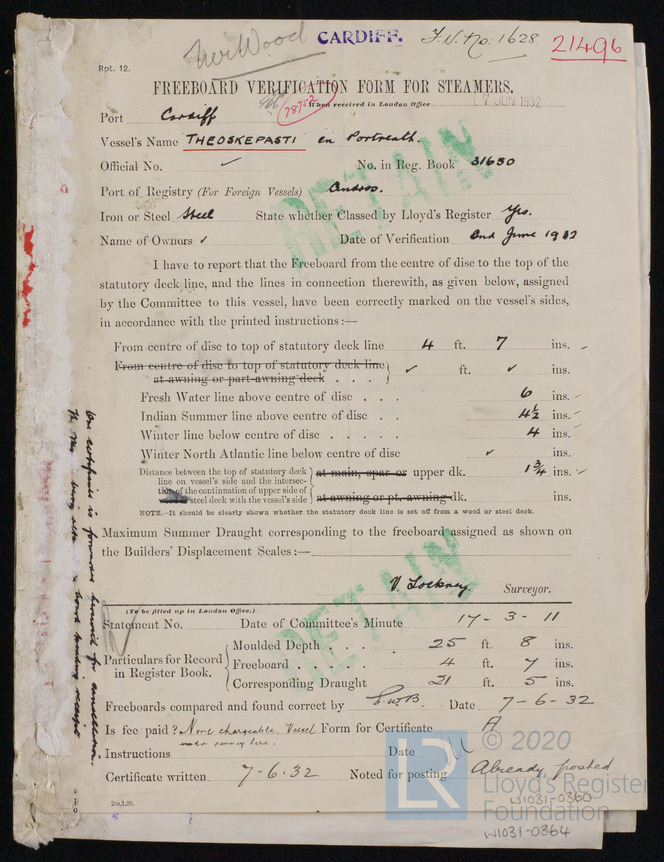 Mr Wood CARDIFF. F.V. No: 1628 21496
Rpt. 12.
FREEBOARD VERIFICATION FORM FOR STEAMERS.
78752 When received in London Office JUN 1932
Port Cardiff
Vessel's Name THEOSKEPASTI ex Portreath.
Official No. No. in Reg. Book 31650
Port of Registry (For Foreign Vessels) Andros.
Iron or Steel Steel State whether Classed by Lloyd's Register Yes.
Name of Owners Date of Verification 2nd June 1932
I have to report that the Freeboard from the centre of disc to the top of the
statutory deck line, and the lines in connection therewith, as given below, assigned
by the Committee to this vessel, have been correctly marked on the vessel's sides,
in accordance with the printed instructions:—
From centre of disc to top of statutory deck line 4 ft. 7 ins.
From centre of disc to top of statutory deck line
at awning or part-awning deck . . . ft. ins.
Fresh Water line above centre of disc . . . 6 ins.
Indian Summer line above centre of disc . . 4½ ins.
Winter line below centre of disc . . . . . 4 ins.
Winter North Atlantic line below centre of disc ins.
Distance between the top of statutory deck
line on vessel's side and the intersec-
tion of the continuation of upper side of
steel deck with the vessel's side
at main, spar or upper dk. 1¾ ins.
at awning or pt. awning dk. ins.
NOTE.—It should be clearly shown whether the statutory deck line is set off from a wood or steel deck.
Maximum Summer Draught corresponding to the freeboard assigned as shown on
the Builders' Displacement Scales:—
V. Lockney. Surveyor.
RETAIN
RETAIN
(To be filled up in London Office.)
Statement No. Date of Committee's Minute 17 - 3 - 11
Particulars for Record
in Register Book.
Moulded Depth . . . . 25 ft. 8 ins.
Freeboard . . . . 4 ft. 7 ins.
Corresponding Draught 21 ft. 5 ins.
Freeboards compared and found correct by Date 7-6-32
Is fee paid? None chargeable. Vessel Form for Certificate A
under survey here.
Instructions Date
Certificate written 7-6-32 Noted for posting Already posted
2m,1,29.
One certificate is forwarded herewith for cancellation.
LR © 2020
Lloyd's Register
Foundation
W1031-0360
W1031-0364